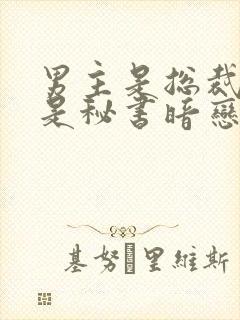 男主是总裁
是秘书暗戀
基努·里維斯